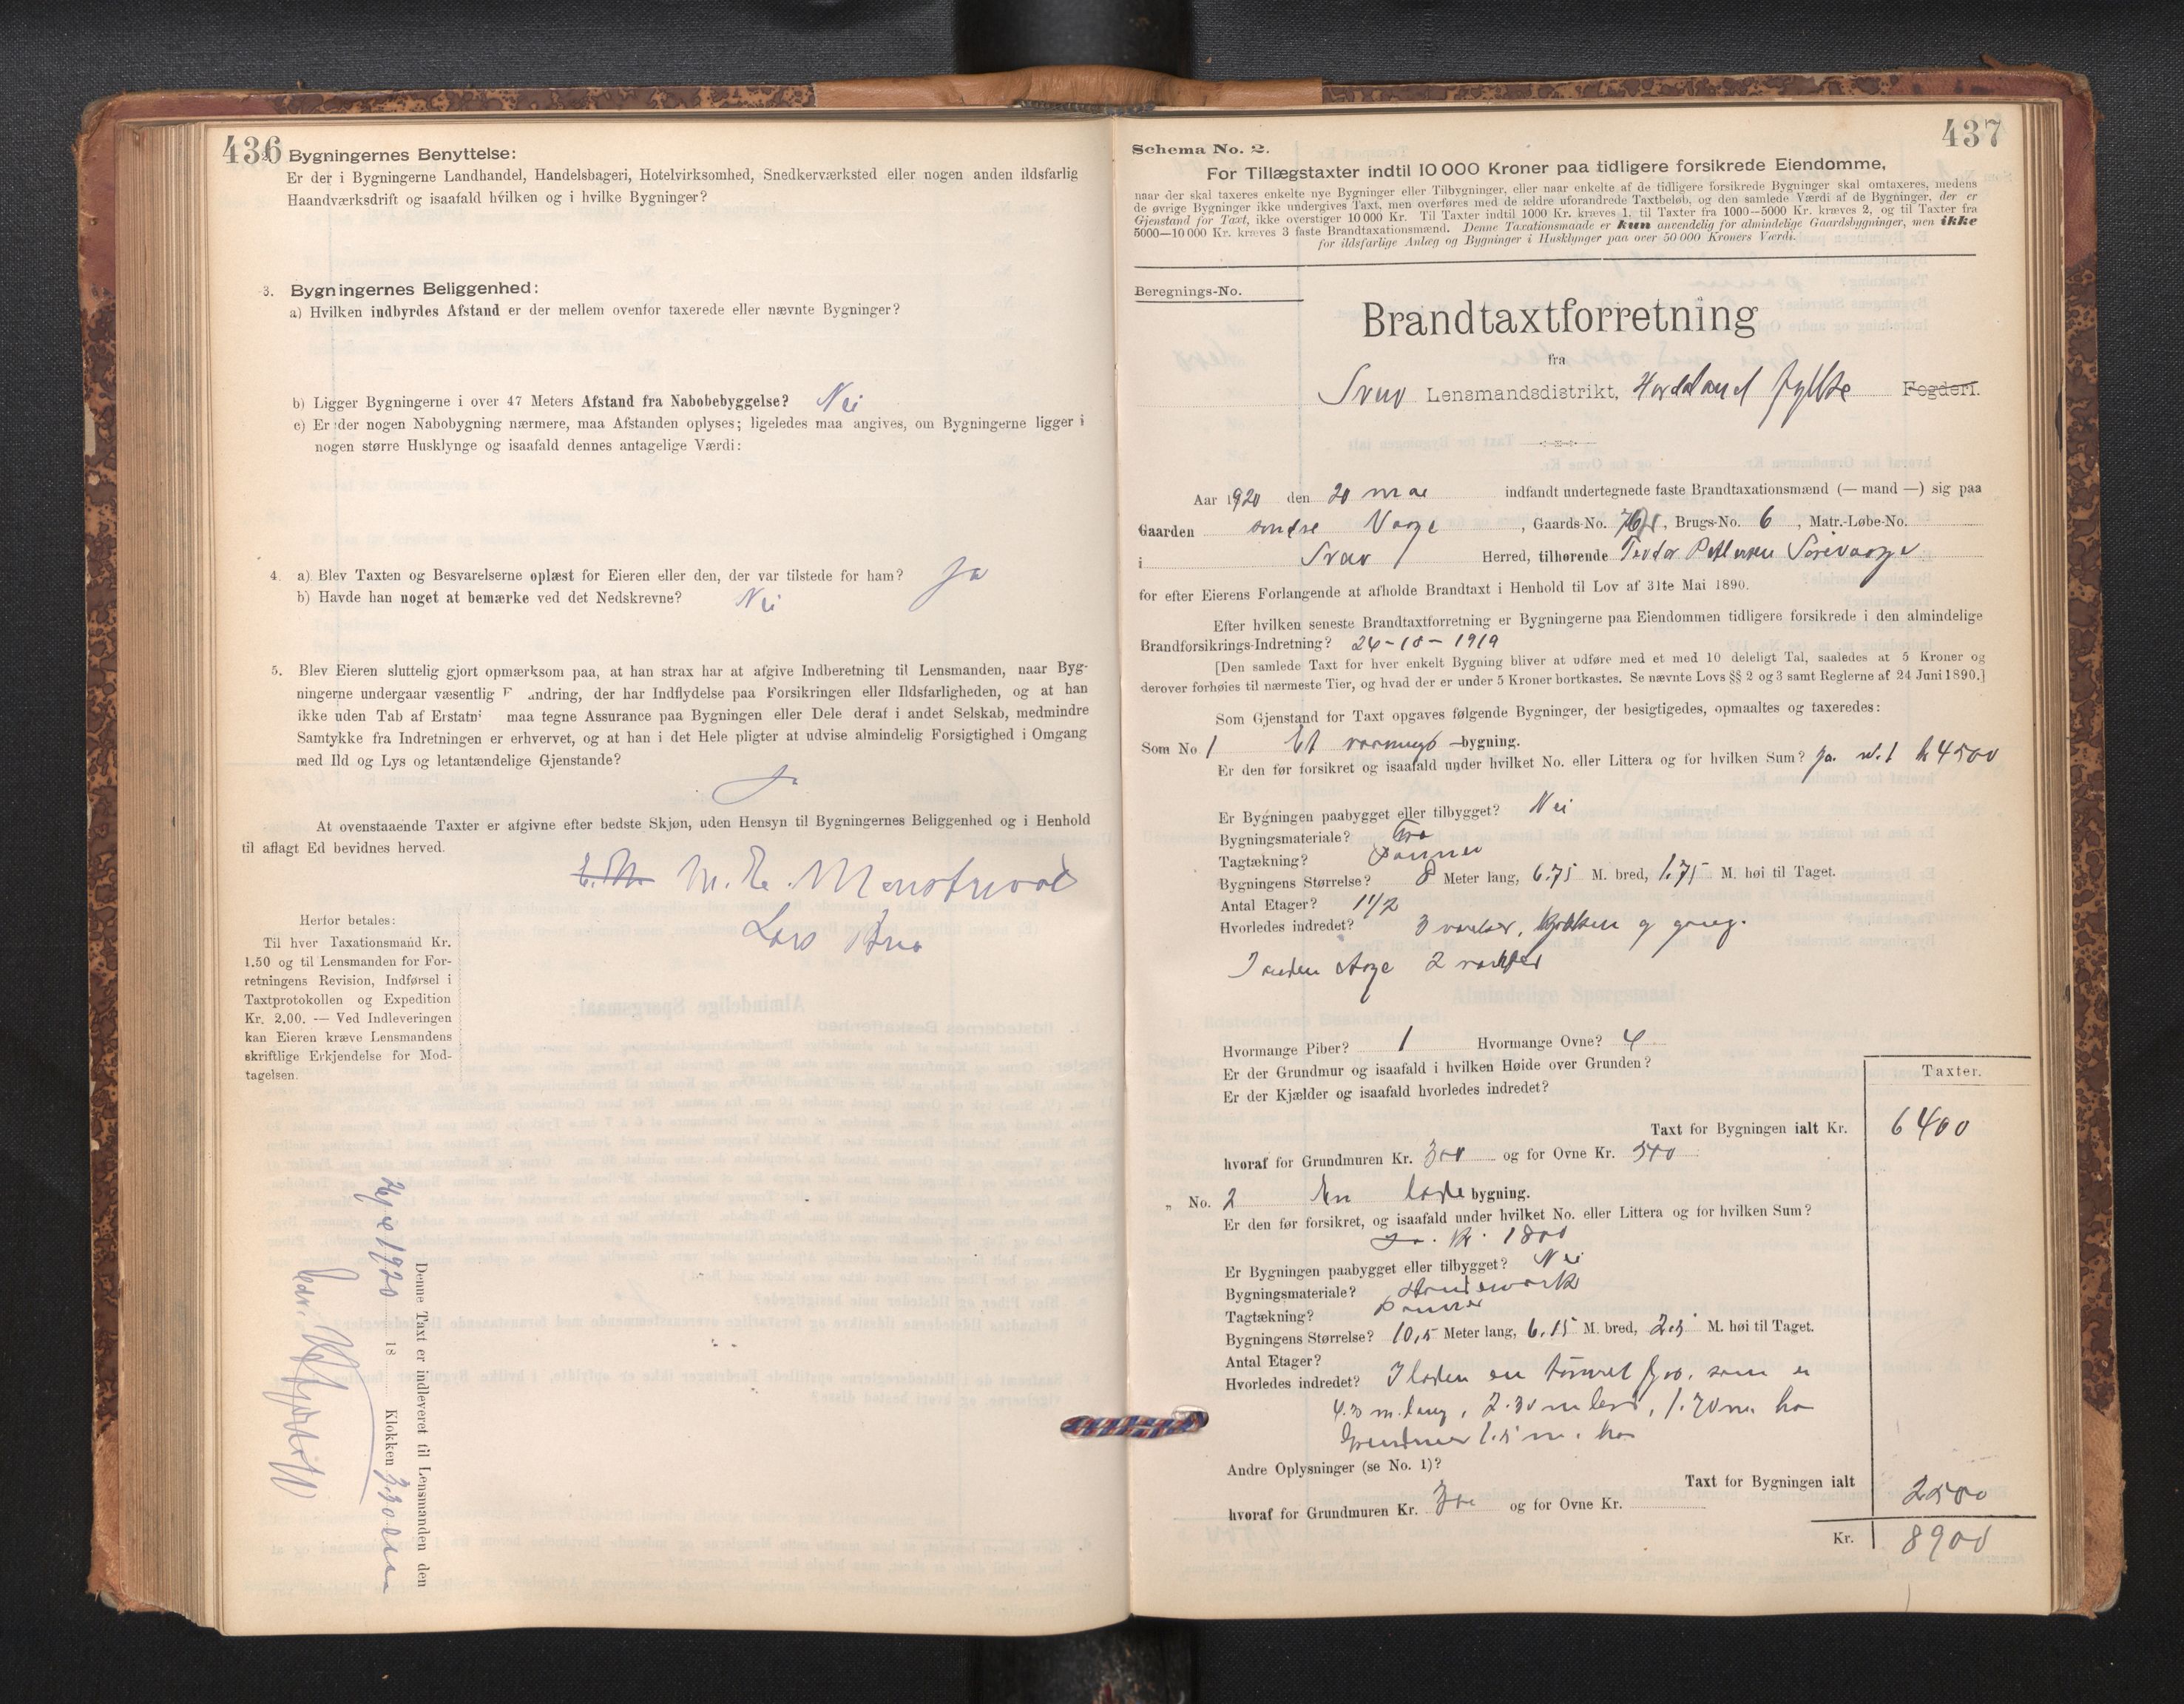 436
Bygningernes Benyttelse:
Er der i Bygningerne Landhandel, Handelsbageri, Hotelvirksomhed, Snedkerværksted eller nogen anden ildsfarlig
Haandværksdrift og isaafald hvilken og i hvilke Bygninger?
3. Bygningernes Beliggenhed:
a) Hvilken indbyrdes Afstand er der mellem ovenfor taxerede eller nævnte Bygninger?
b) Ligger Bygningerne i over 47 Meters Afstand fra Nabobebyggelse? Nei
c) Er der nogen Nabobygning nærmere, maa Afstanden oplyses; ligeledes maa angives, om Bygningerne ligger i
nogen større Husklynge og isaafald dennes antagelige Værdi:
4. a) Blev Taxten og Besvarelserne oplæst for Eieren eller den, der var tilstede for ham? Ja
b) Havde han noget at bemærke ved det Nedskrevne? Nei
5. Blev Eieren sluttelig gjort opmærksom paa, at han strax har at afgive Indberetning til Lensmanden, naar Byg-
ningerne undergaar væsentlig F andring, der har Indflydelse paa Forsikringen eller Ildsfarligheden, og at han
ikke uden Tab af Erstatn maa tegne Assurance paa Bygningen eller Dele deraf i andet Selskab, medmindre
Samtykke fra Indretningen er erhvervet, og at han i det Hele pligter at udvise almindelig Forsigtighed i Omgang
med Ild og Lys og letantændelige Gjenstande?
Ja
At ovenstaaende Taxter er afgivne efter bedste Skjøn, uden Hensyn til Bygningernes Beliggenhed og i Henhold
til aflagt Ed bevidnes herved.
M. E.
Lars
Herfor betales:
Til hver Taxationsmand Kr.
1.50 og til Lensmanden for For-
retningens Revision, Indførsel i
Taxtprotokollen og Expedition
Kr. 2,00. — Ved Indleveringen
kan Eieren kræve Lensmandens
skriftlige Erkjendelse for Mod-
tagelsen.
Denne Taxt er indleveret til Lensmanden den
1920 18 Klokken 3.30
437
Schema No. 2.
For Tillægstaxter indtil 10 000 Kroner paa tidligere forsikrede Eiendomme,
naar der skal taxeres enkelte nye Bygninger eller Tilbygninger, eller naar enkelte af de tidligere forsikrede Bygninger skal omtaxeres, medens
de øvrige Bygninger ikke undergives Taxt, men overføres med de ældre uforandrede Taxtbeløb, og den samlede Værdi af de Bygninger, der er
Gjenstand for Taxt, ikke overstiger 10 000 Kr. Til Taxter indtil 1000 Kr. kræves 1, til Taxter fra 1000—5000 Kr. kræves 2, og til Taxter fra
5000—10 000 Kr. kræves 3 faste Brandtaxationsmænd. Denne Taxationsmaade er kun anvendelig for almindelige Gaardsbygninger, men ikke
for ildsfarlige Anlæg og Bygninger i Husklynger paa over 50 000 Kroners Værdi.
Beregnings-No.
Brandtaxtforretning
fra
Lensmandsdistrikt, Hordaland fylke Fogderi.
Aar 1920 den 20 mai indfandt undertegnede faste Brandtaxationsmænd (— mand —) sig paa
Gaarden Vaage, Gaards-No. , Brugs-No. 6, Matr.-Løbe-No.
i Herred, tilhørende
for efter Eierens Forlangende at afholde Brandtaxt i Henhold til Lov af 31te Mai 1890.
Efter hvilken seneste Brandtaxtforretning er Bygningerne paa Eiendommen tidligere forsikrede i den almindelige
Brandforsikrings-Indretning? 24-10-1919
[Den samlede Taxt for hver enkelt Bygning bliver at udføre med et med 10 deleligt Tal, saaledes at 5 Kroner og
derover forhøies til nærmeste Tier, og hvad der er under 5 Kroner bortkastes. Se nævnte Lovs §§ 2 og 3 samt Reglerne af 24 Juni 1890.]
Som Gjenstand for Taxt opgaves følgende Bygninger, der besigtigedes, opmaaltes og taxeredes:
Som No 1 Et -bygning.
Er den før forsikret og isaafald under hvilket No. eller Littera og for hvilken Sum? Ja. nr. 1 kr 4500
Er Bygningen paabygget eller tilbygget? Nei
Bygningsmateriale? Træ
Tagtækning? Panner
Bygningens Størrelse? 8 Meter lang, 6.75 M. bred, M. høi til Taget.
Antal Etager? 1 1/2
Hvorledes indredet? 3 værelser, kjøkken og gang.
I anden etage 2 værelser
Hvormange Piber? 1 Hvormange Ovne? 4
Er der Grundmur og isaafald i hvilken Høide over Grunden?
Er der Kjælder og isaafald hvorledes indredet?
Taxter.
Taxt for Bygningen ialt Kr. 6400
hvoraf for Grundmuren Kr. 300 og for Ovne Kr.
„ No. 2 En lade bygning.
Er den før forsikret, og isaafald under hvilket No. eller Littera og for hvilken Sum?
Ja. kr. 1800
Er Bygningen paabygget eller tilbygget? Nei
Bygningsmateriale?
Tagtækning? Panner
Bygningens Størrelse? 10,5 Meter lang, 6.15 M. bred, 2.5 M. høi til Taget.
Antal Etager?
Hvorledes indredet? I laden en tømret fjøs, som er
4.30 m. lang, 2.30 m bred, 1.70 m. høi
Grundmur 1.5 m. høi
Andre Oplysninger (se No. 1)?
Taxt for Bygningen ialt 2500
hvoraf for Grundmuren Kr. 300 og for Ovne Kr.
Kr. 8900